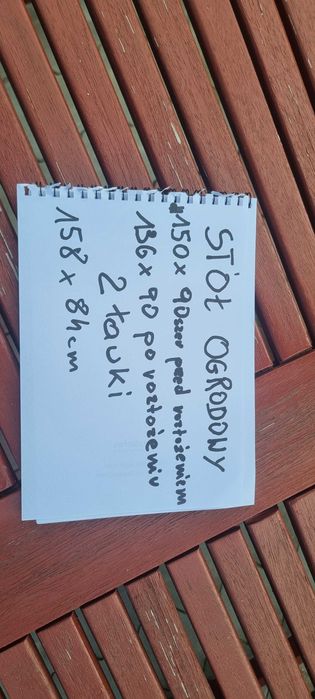 STÓŁ OGRODOWY
150 x 90 szer przed rozłożeniem
196 x 90 po rozłożeniu
2 ławki
158 x 84 cm